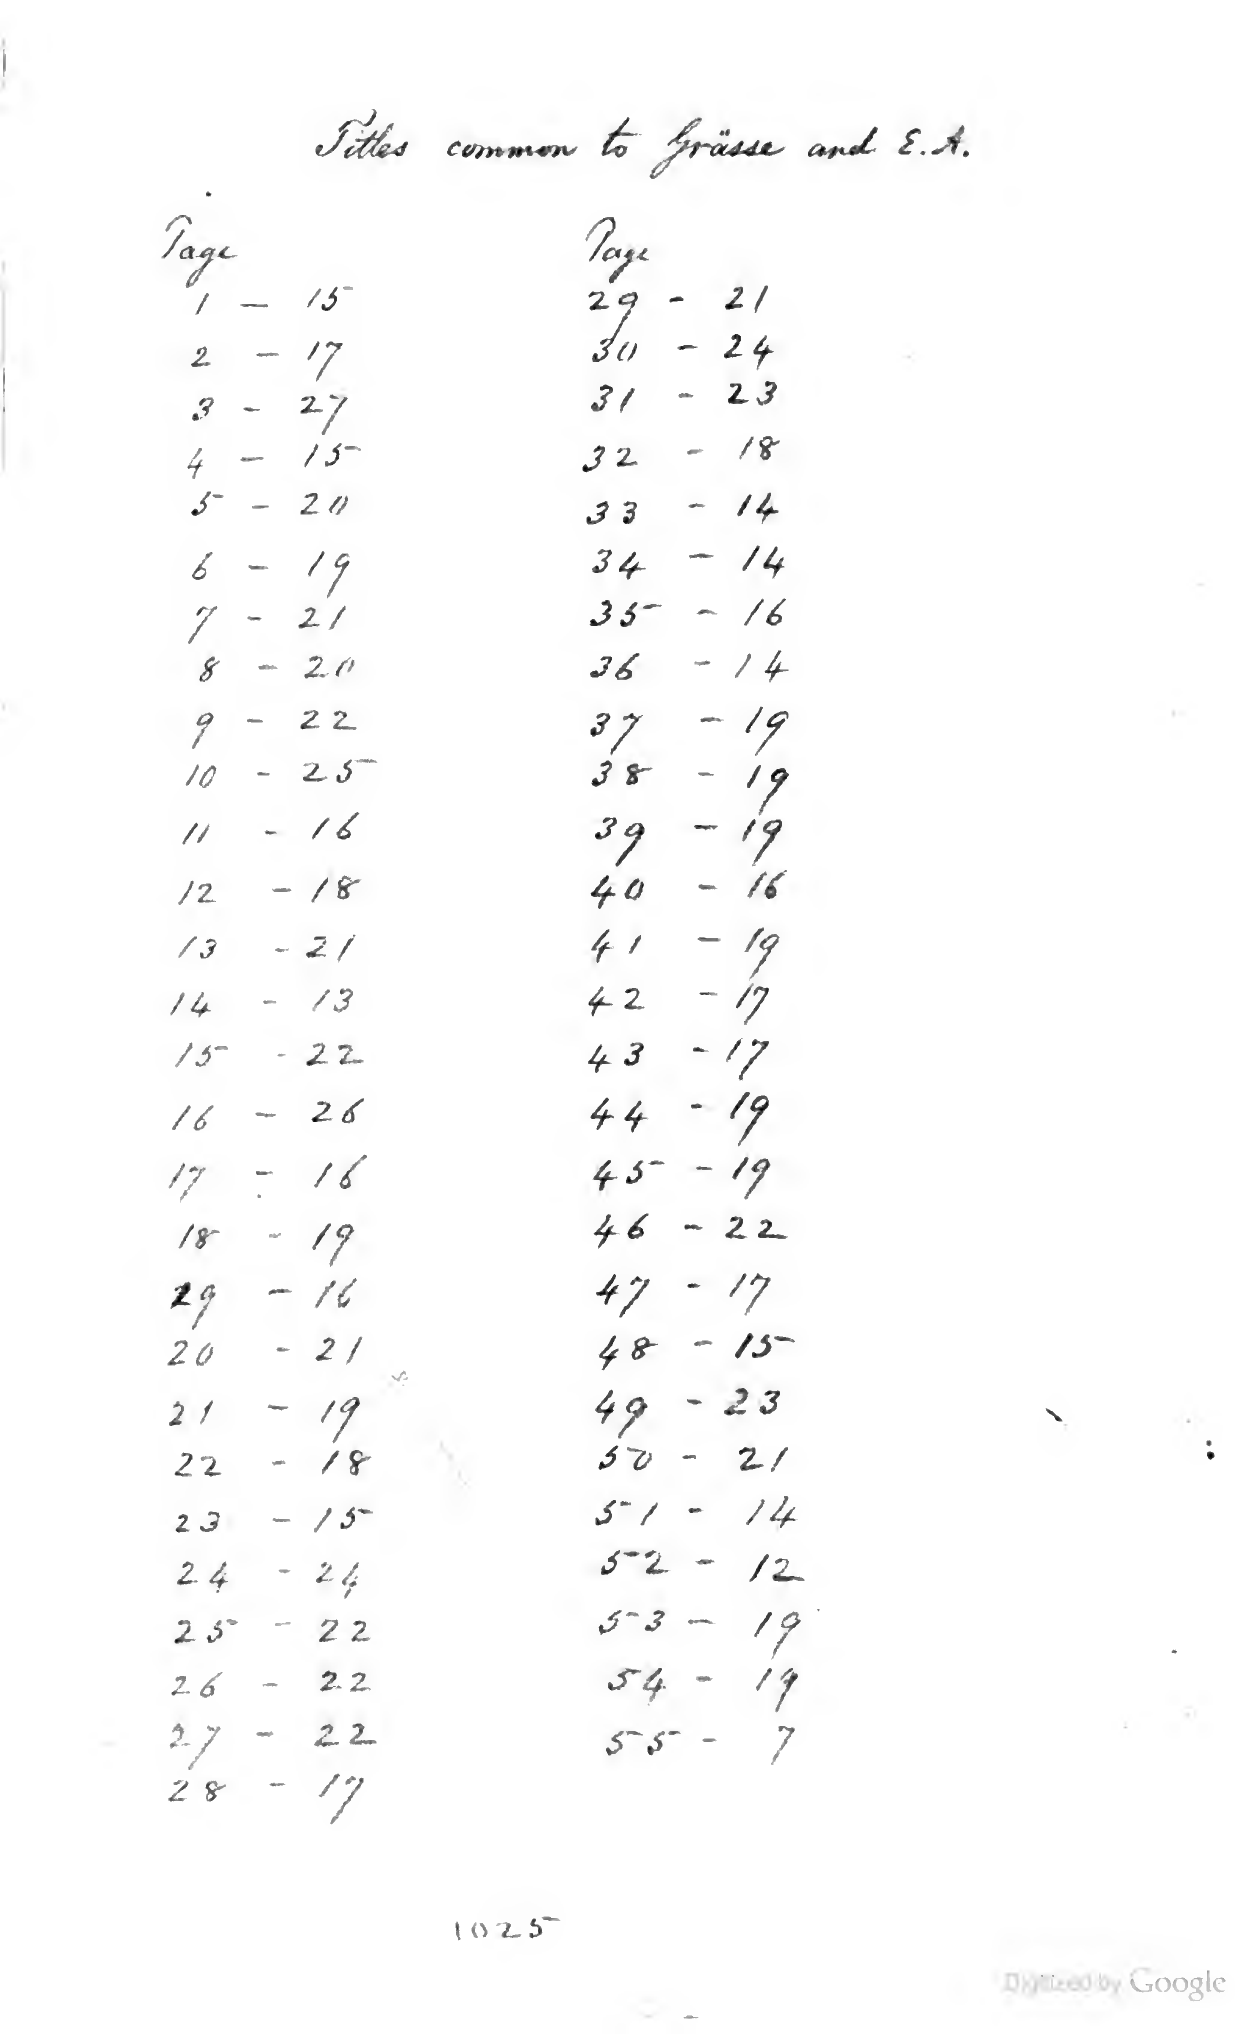 Titles common to Grässe and E.A.
Page
1 — 15
2 — 17
3 - 27
4 — 15
5 - 20
6 - 19
7 - 21
8 - 20
9 - 22
10 - 25
11 - 16
12 - 18
13 - 21
14 - 13
15 - 22
16 - 26
17 - 16
18 - 19
29 - 16
20 - 21
21 - 19
22 - 18
23 - 15
24 - 24
25 - 22
26 - 22
27 - 22
28 - 17
Page
29 - 21
30 - 24
31 - 23
32 - 18
33 - 14
34 - 14
35 - 16
36 - 14
37 - 19
38 - 19
39 - 19
40 - 16
41 - 19
42 - 17
43 - 17
44 - 19
45 - 19
46 - 22
47 - 17
48 - 15
49 - 23
50 - 21
51 - 14
52 - 12
53 - 19
54 - 19
55 - 7
1025
Digitized by Google